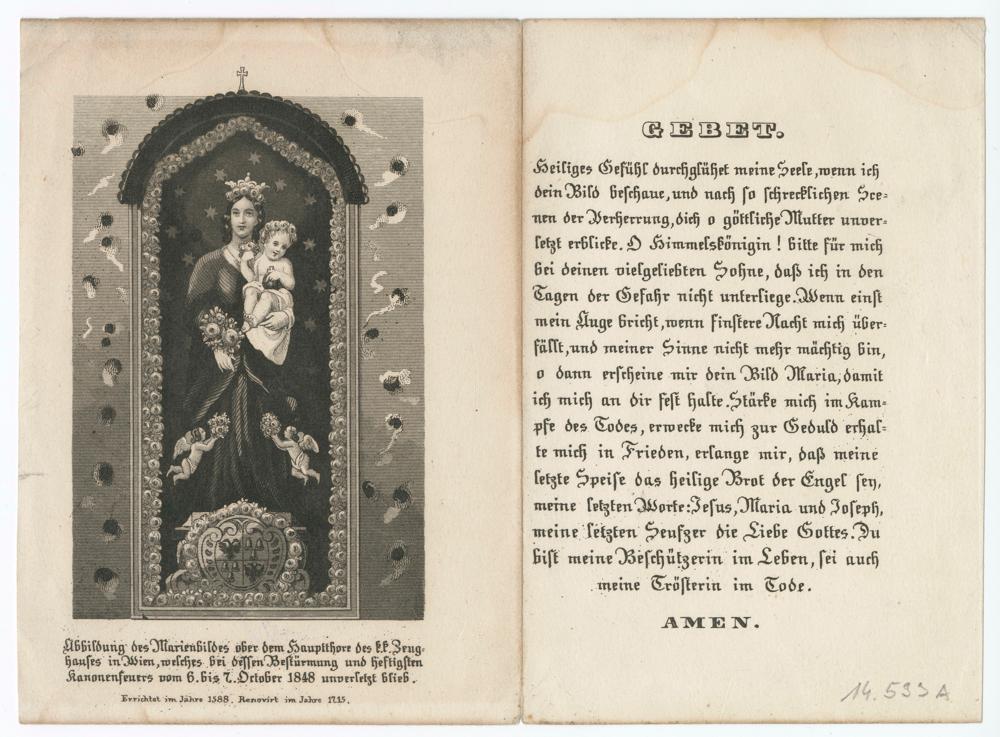 Abbildung des Marienbildes ober dem Hauptthore des k.k. Zeug-
hauses in Wien, welches bei dessen Bestürmung und heftigsten
Kanonenfeuers vom 6. bis 7. October 1848 unverletzt blieb.
Errichtet im Jahre 1588. Renovirt im Jahre 1715.
GEBET.
Heiliges Gefühl durchglühet meine Seele, wenn ich
dein Bild beschaue, und nach so schrecklichen Sce-
nen der Verherrung, dich o göttliche Mutter unver-
letzt erblicke. O Himmelskönigin! bitte für mich
bei deinen vielgeliebten Sohne, daß ich in den
Tagen der Gefahr nicht unterliege. Wenn einst
mein Auge bricht, wenn finstere Nacht mich über-
fällt, und meiner Sinne nicht mehr mächtig bin,
o dann erscheine mir dein Bild Maria, damit
ich mich an dir fest halte. Stärke mich im Kam-
pfe des Todes, erwecke mich zur Geduld erhal-
te mich in Frieden, erlange mir, daß meine
letzte Speise das heilige Brot der Engel sey,
meine letzten Worte: Jesus, Maria und Joseph,
meine letzten Seufzer die Liebe Gottes. Du
bist meine Beschützerin im Leben, sei auch
meine Trösterin im Tode.
AMEN.
14.533 A